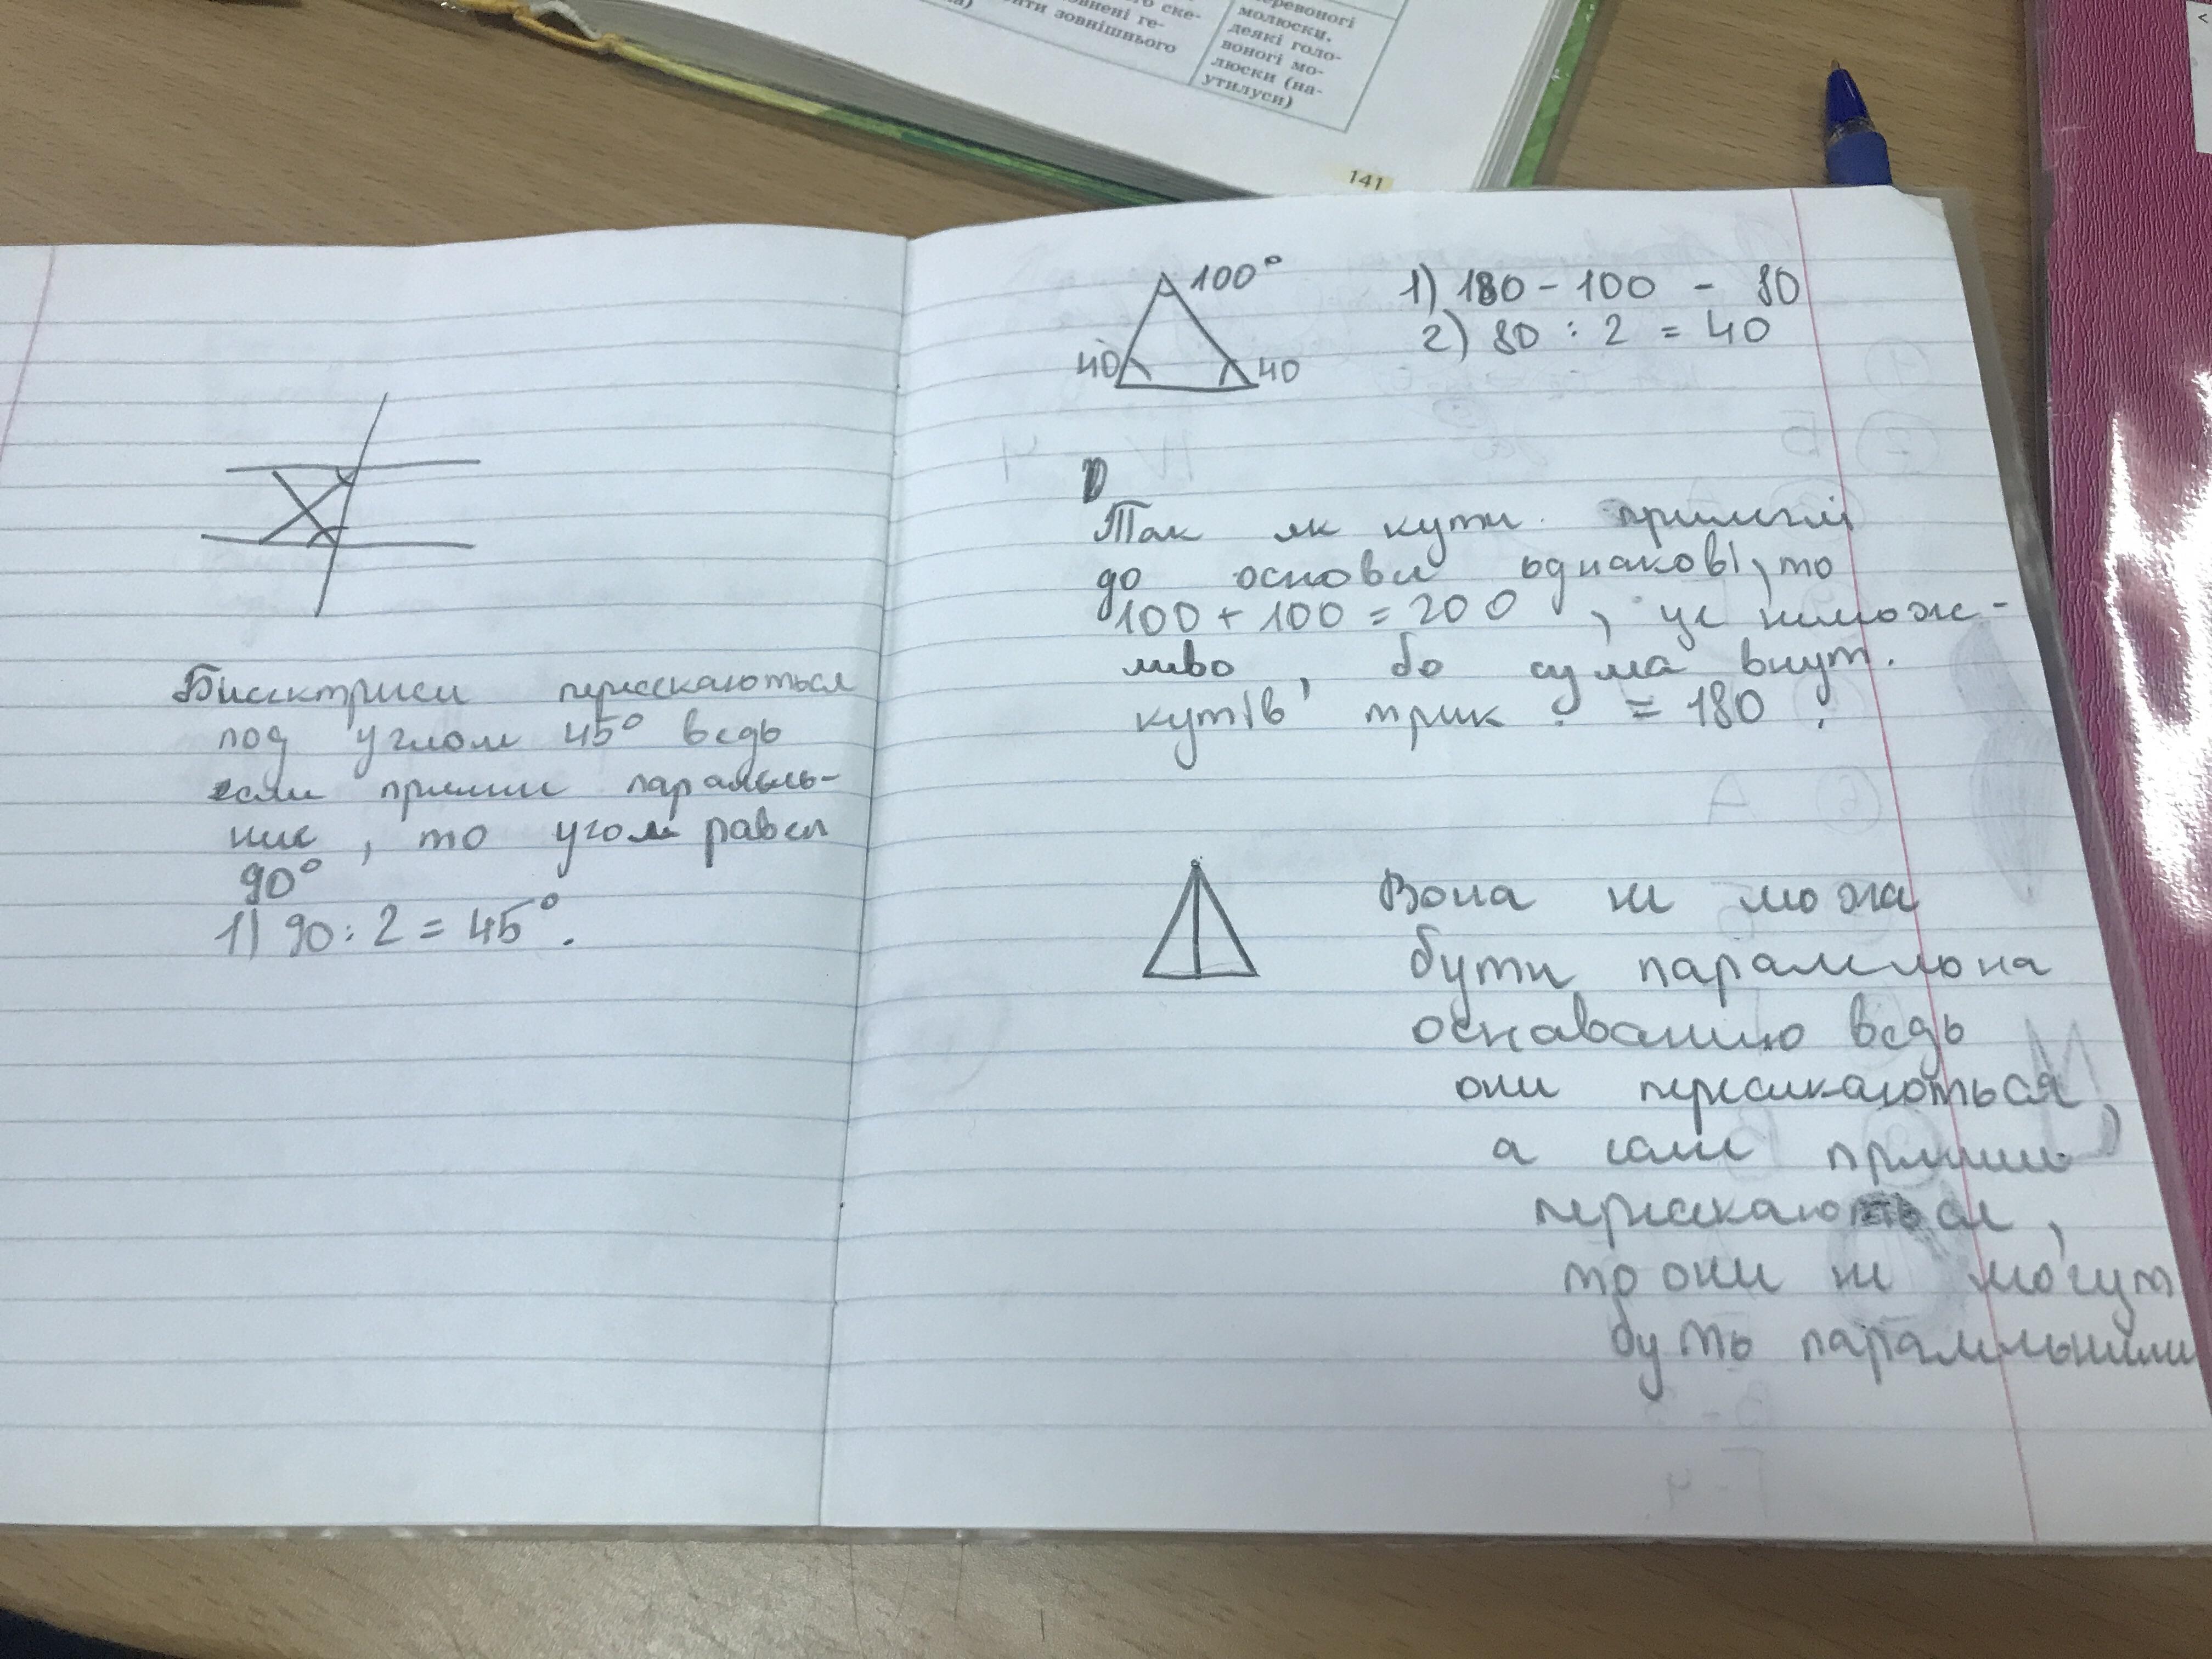 ске-
внені ге-
ити зовнішнього
черевоногі
молюски,
деякі голо-
воногі мо-
люски (на-
утилуси)
141
Бисектриси пересекаються
под углом 45° ведь
если прямые паралель-
ние, то угол равен
90°
1) 90 : 2 = 45°.
100°
40
40
1) 180 - 100 - 80
2) 80 : 2 = 40
Так як кути прилеглі
до основи однакові, то
100 + 100 = 200 , це немож-
ливо , бо сума внут.
кутів трик . = 180 .
Вона не можа
бути паралельна
оснаванию ведь
они пересикаються,
а если прямые
пересекаються ,
то они не могут
буть паралельними